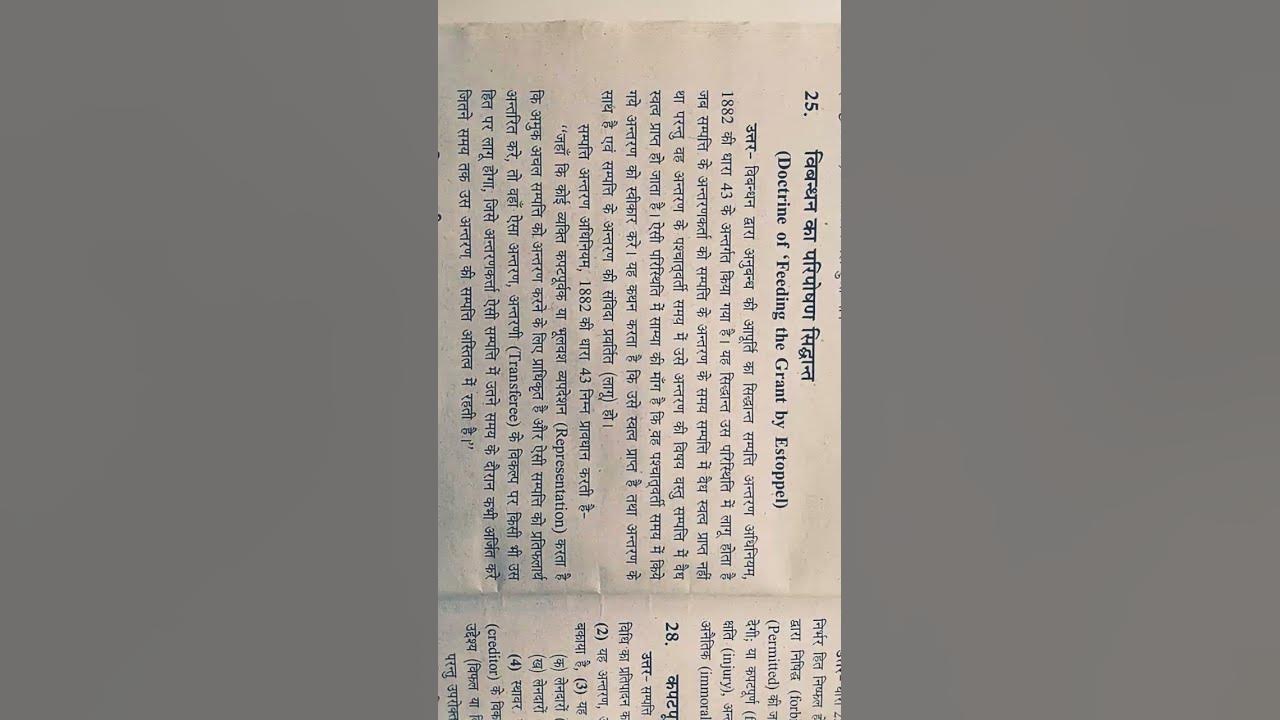 25. विबन्धन का परिपोषण सिद्धान्त
(Doctrine of ‘Feeding the Grant by Estoppel)
उत्तर– विबन्धन द्वारा अनुबन्ध की आपूर्ति का सिद्धान्त सम्पत्ति अन्तरण अधिनियम,
1882 की धारा 43 के अन्तर्गत किया गया है। यह सिद्धान्त उस परिस्थिति में लागू होता है
जब सम्पत्ति के अन्तरणकर्ता को सम्पत्ति के अन्तरण के समय सम्पत्ति में वैध स्वत्व प्राप्त नहीं
था परन्तु वह अन्तरण के पश्चात्वर्ती समय में उसे अन्तरण की विषय वस्तु सम्पत्ति में वैध
स्वत्व प्राप्त हो जाता है। ऐसी परिस्थिति में साम्या की माँग है कि वह पश्चात्वर्ती समय में किये
गये अन्तरण को स्वीकार करे। यह कथन करता है कि उसे स्वत्व प्राप्त है तथा अन्तरण के
साथ है एवं सम्पत्ति के अन्तरण की संविदा प्रवर्तित (लागू) हो।
सम्पत्ति अन्तरण अधिनियम, 1882 की धारा 43 निम्न प्रावधान करती है–
“जहाँ कि कोई व्यक्ति कपटपूर्वक या भूलवश व्यपदेशन (Representation) करता है
कि अमुक अचल सम्पत्ति को अन्तरण करने के लिए प्राधिकृत है और ऐसी सम्पत्ति को प्रतिफलार्थ
अन्तरित करे, तो वहाँ ऐसा अन्तरण, अन्तरणी (Transferee) के विकल्प पर किसी भी उस
हित पर लागू होगा, जिसे अन्तरणकर्ता ऐसी सम्पत्ति में उतने समय के दौरान कभी अर्जित करे
जितने समय तक उस अन्तरण की सम्पत्ति अस्तित्व में रहती है।”
निर्भर हित निष्फल
द्वारा निषिद्ध (forb
(Permitted) की ज
देगी; या कपटपूर्ण (f
क्षति (injury), अन्
अनैतिक (immoral
28. कपटपू
उत्तर– सम्पत्ति
विधि का प्रतिपादन क
(2) यह अन्तरण,
बकाया है, (3) यह
(क) लेनदारों
(ख) लेनदारों
(4) स्थावर
(creditor) के विक
उद्देश्य (विफल या
परन्तु उपरोक्त